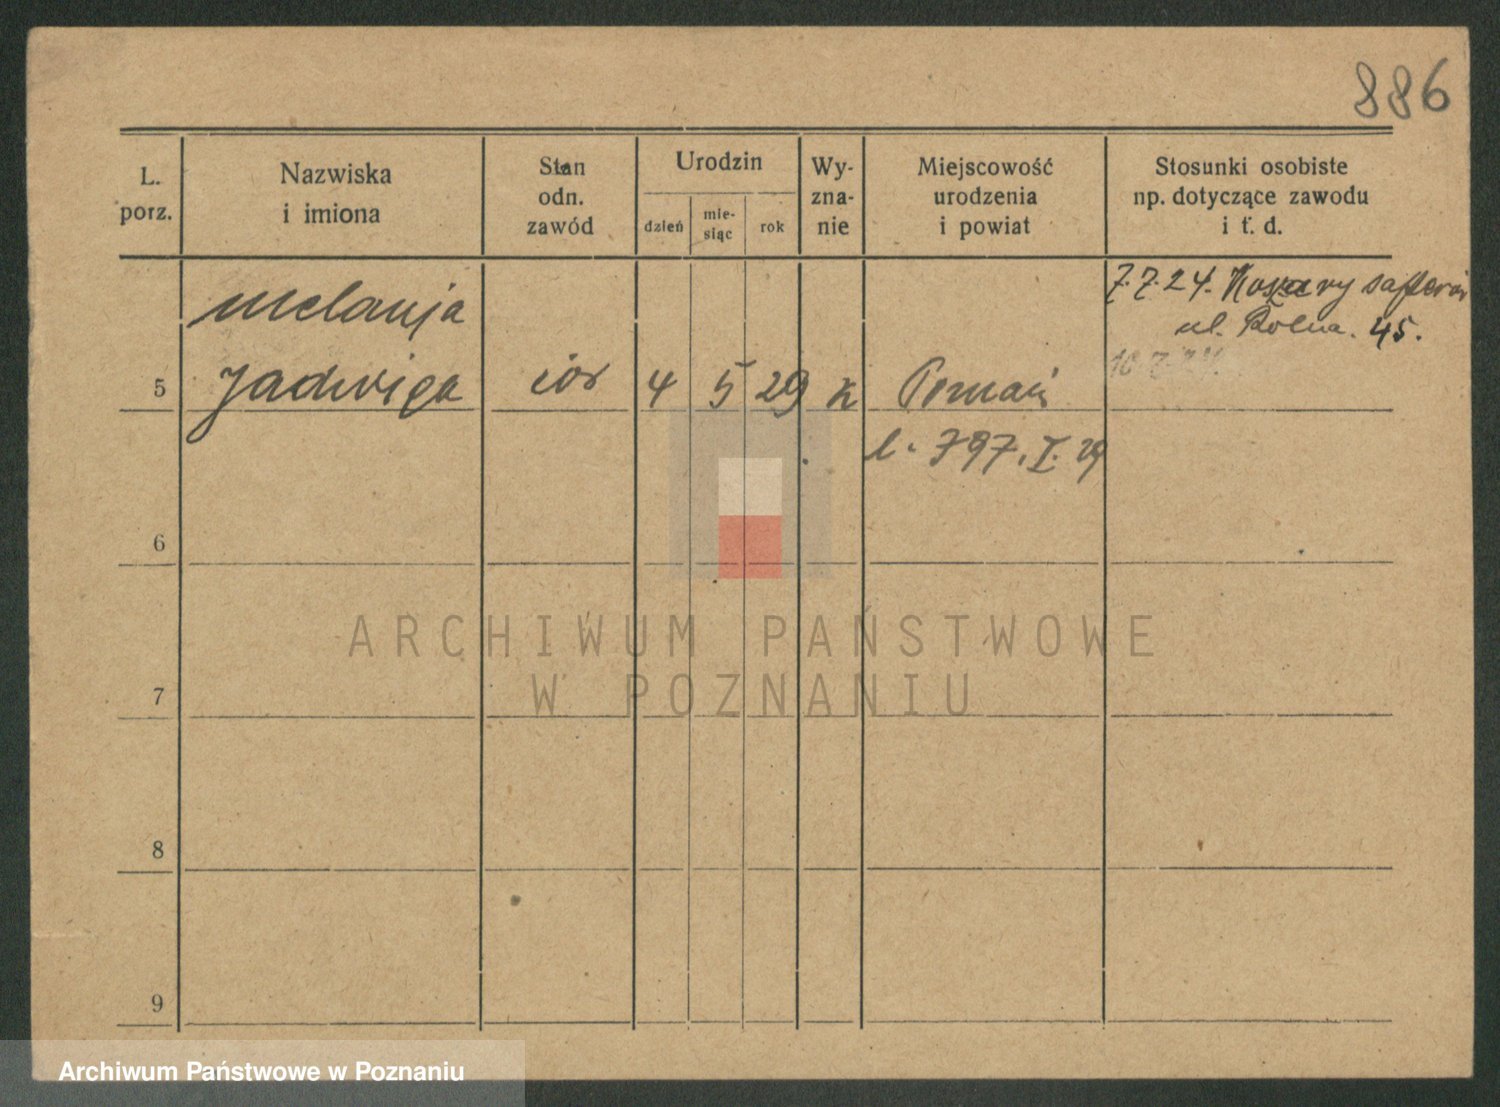 886
L. porz.
Nazwiska i imiona
Stan odn. zawód
Urodzin
dzień
mie-
siąc
rok
Wy-
zna-
nie
Miejscowość urodzenia i powiat
Stosunki osobiste np. dotyczące zawodu i t. d.
Melanja
7.7.24. Koszary saperów
ul. Rolna. 45.
5 Jadwiga cór 4 5 29 k Poznań
l. 797. I. 29
6
7
8
9
ARCHIWUM PAŃSTWOWE
W POZNANIU
Archiwum Państwowe w Poznaniu